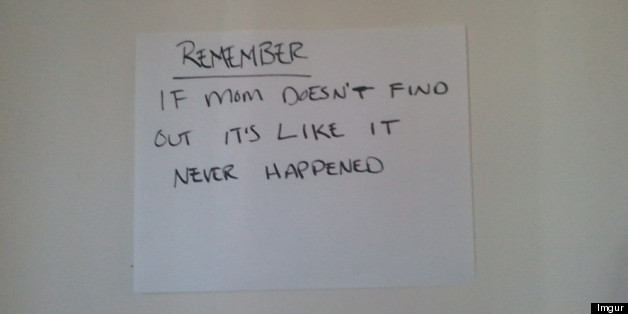 REMEMBER
IF MOM DOESN'T FIND
OUT IT'S LIKE IT
NEVER HAPPENED
Imgur